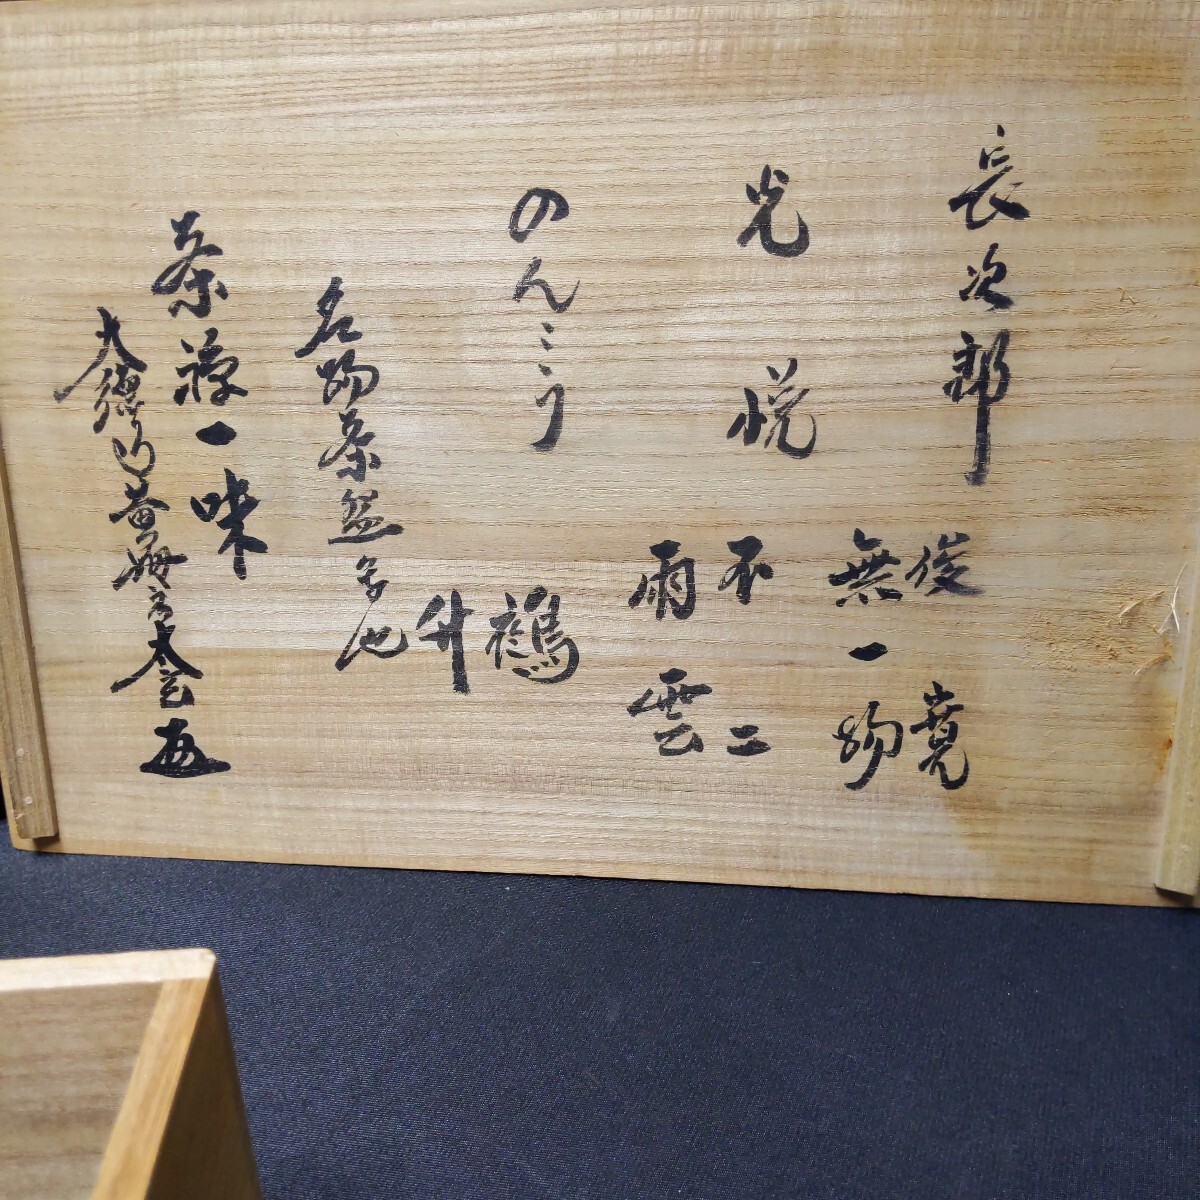 長次郎
俊寛
無一物
光悦
不二
雨雲
のんこう
鵺
升
名物茶盌写也
茶禅一味
大徳寺黄梅院太玄